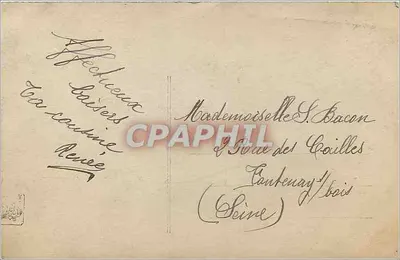 Affectueux
baisers
Ta cousine
Renée
Mademoiselle S. Bacon
2 Rue des Cailles
Fontenay s/ bois
(Seine)
CPAPHIL